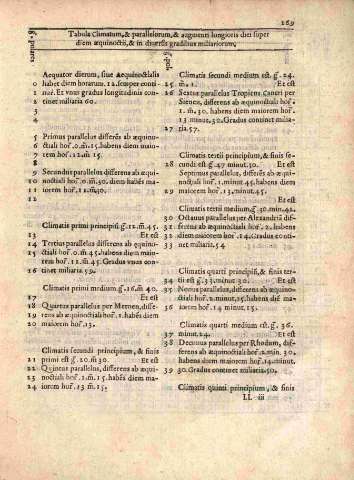 269
Tabula Climatum, & parallelorum, & augmenti longioris diei super
diem æquinoctij, & in diuersis gradibus miliariorum,
Aequator dierum, siue Aequinoctialis
0 habet diem horarum. 12. semper conti-
1 nuè. Et vnus gradus longitudinis con-
2 tinet miliaria 60.
3
4
5 Primus parallelus differēs ab æquino-
6 ctiali hor. 0. m̃. 15. habens diem maio-
7 rem hor. 12. m̃ 15.
8
9 Secundus parallelus differens ab æqui-
10 noctiali hor. 0. m̃. 30. diem habēs ma-
11 iorem hor. 12. m̃ 30.
12
Climatis primi principiū g̃. 12. m̃. 45.
13 Et
14 Tertius parallelus differens ab equino-
15 ctiali hor. 0. m̃. 45. habens diem maio-
rem hor. 12. m̃ 45. Gradus vnus con-
16 tinet miliaria 59.
Climatis primi medium g̃. 16. m̃ 40.
17 Et
18 Quartus parallelus per Meroen, diffe-
19 rens ab æquinoctiali hor. 1. habens diē
20 maiorem hor. 13.
Climatis secundi principium, & finis
21 primi est g̃. 20. m̃ 30. Et
22 Quintus parallelus, differens ab æqui-
23 noctiali hor. 1. m̃. 15. habēs diem ma-
24 iorem hor. 13. m̃. 15.
Climatis secundi medium est g̃. 24.
25 m̃. 1. Et
26 Sextus parallelus Tropicus Cancri per
Sienen, differens ab æquinoctiali hor.
1. m̃. 30. habens diem maiorem hor.
13 minut. 30. Gradus continet milia-
27 ria 57.
Climatis tertij principium, & finis se-
28 cundi est g̃. 27 minut. 30. Et
Septimus parallelus, differens ab æqui-
noctiali hor. 1. minut. 45. habens diem
29 maiorem hor. 13. minut. 45.
Et
Climatis tertij medium g̃. 30. min. 45.
30 Octauus parallelus per Alexandriā dif-
31 ferens ab æquinoctiali hor. 2. habens
32 diem maiorem hor. 14. Gradus conti-
33 net miliaria 54
Climatis quarti principiū, & finis ter-
34 tij est g̃. 33. minut 30. Et
35 Nonus parallelus, differens ab æquino-
ctiali hor. 2. minut. 15. habens diē ma-
36 iorem hor. 14 minut. 15.
Climatis quarti medium est g̃. 36.
37 minut 24. Et
38 Decimus parallelus per Rhodum, dif-
ferens ab æquinoctiali hor. 2. min. 30.
habens diem maiorem hor. 14. minut.
39 30. Gradus continet miliaria 50.
Climatis quinti principium, & finis
Ll iij